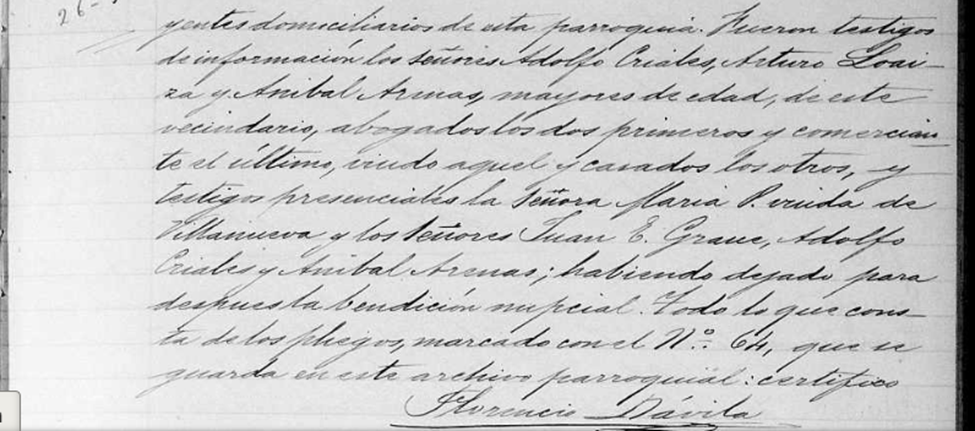 26-
yentes domiciliarios de esta parroquia. Fueron testigos
de información los señores Adolfo Criales, Arturo Loai-
za y Anibal Arenas, mayores de edad, de este
vecindario, abogados los dos primeros y comercian
te el último, viudo aquel y casados los otros, y
testigos presenciales la señora Maria P. viuda de
Villanueva y los señores Juan E. Graue, Adolfo
Criales y Anibal Arenas; habiendo dejado para
despues la bendición nupcial. Todo lo que cons-
ta de los pliegos, marcado con el Nº. 64, que se
guarda en este archivo parroquial: certifico
Florencio Dávila